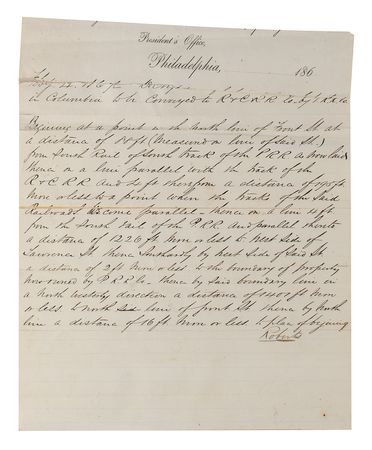 President's Office,
Philadelphia, 186
in Columbia to be Conveyed to R & C R R Co. by
Begining at a point on the North line of Front St at
a distance of 18 ft (Measured on line of Said St.)
from South Rail of South track of the P R R as now laid
thence on a line parallel with the track of the
R & C R R and 4 ft therefrom a distance of 195 ft
More or less to a point where the tracks of the Said
Railroads become parallel - thence on a line
from the South Rail of the P R R and parallel thereto
a distance of 1226 ft More or less to West Side of
Lawrence St. thence Southardly by West Side of Said St
a distance of 2 ft More or less to the boundary of property
Now owned by P R R Co. thence by Said boundary line in
a North westerly direction a distance of 1400 ft More
or less to North line of front St thence by North
line a distance of 16 ft More or less to place of begining
Roberts